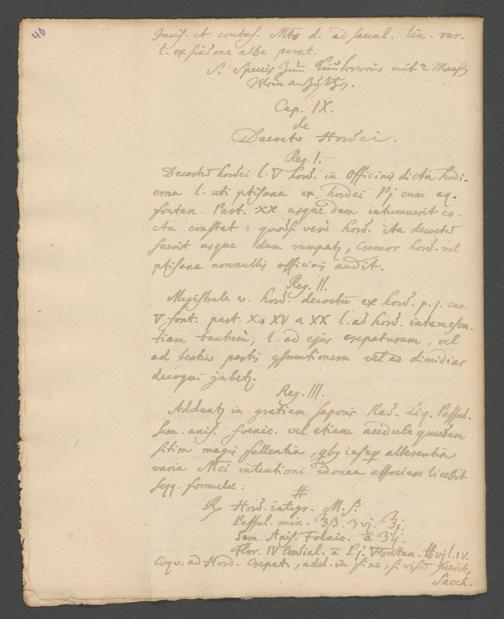 40
incis. et contus. d. ad sacul.
S. Species zum mit 2 Maaß
Cap. IX.
de
Decocto Hordei.
Reg. I.
Decoctum hordei l. hord. in officinis dicta hodi-
erna l. uti ptisana ex hordei Pj cum aq.
fontan. Part. XX usque dum intumuerit co-
cta constat: quodsi vero hord. ita decoctum
fuerit usque dum rumpatur, Cremor hord. vel
ptisana nonnullis officinis audit.
Reg. II.
Magistrale v. hord. decoctum ex hord. p. j. cum
font. part. X. XV a XX l. ad hord. intumescen-
tiam tantum, l. ad ejus crepaturam, vel
ad tertiae partis consumtionem vel ad dimidiae
decoqui jubetur.
Reg. III.
Adduntur in gratiam saporis Rad. Liq. Passul.
Sem. anis. foenic. vel etiam acidula quaedam
sitim magis fallentia, alterantia
varia intentioni idonea associare licebit
seqq. formulae:
#
Rx Hord. integr. M. s.
Passul. min. ʒvj. ʒj.
Sem Anis. Foenic. a ʒij.
Flor. IV Cordial. a Pj. fontan. vj l. IV.
Coqu. ad Hord. crepat., add. in fine, si visum fuerit,
Sacch.